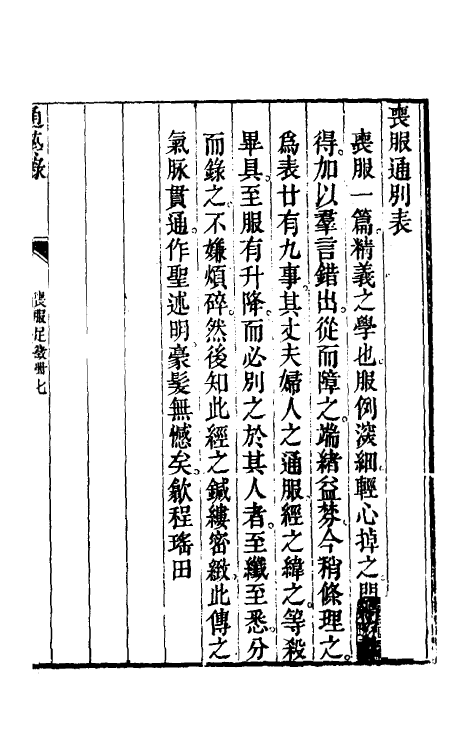 喪服通別表
喪服一篇精義之學也服例深細輕心掉之
得加以羣言錯出從而障之端緒益棼今稍條理之
爲表廿有九事其丈夫婦人之通服經之緯之等殺
畢具至服有升降而必別之於其人者至纖至悉分
而錄之不嫌煩碎然後知此經之鍼縷密緻此傳之
氣脉貫通作聖述明豪髮無憾矣歙程瑤田
通藝錄
喪服足徵冊七